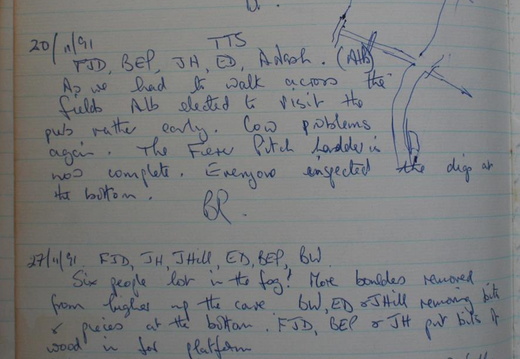 20/11/91 TTS
FJD, BEP, JH, ED, Adash. (Alb)
As we had to walk across the
fields Alb elected to visit the
pub rather early. Cow problems
again. The Pitch Ladder is
now complete. Everyone inspected the digs at
the bottom.
27/11/91 FJD, JH, JHill, ED, BEP, BW
Six people lost in the fog! More boulders removed
from higher up the cave. BW, ED & JHill removing bits
& pieces at the bottom. FJD, BEP & JH put bits of
wood in for platform